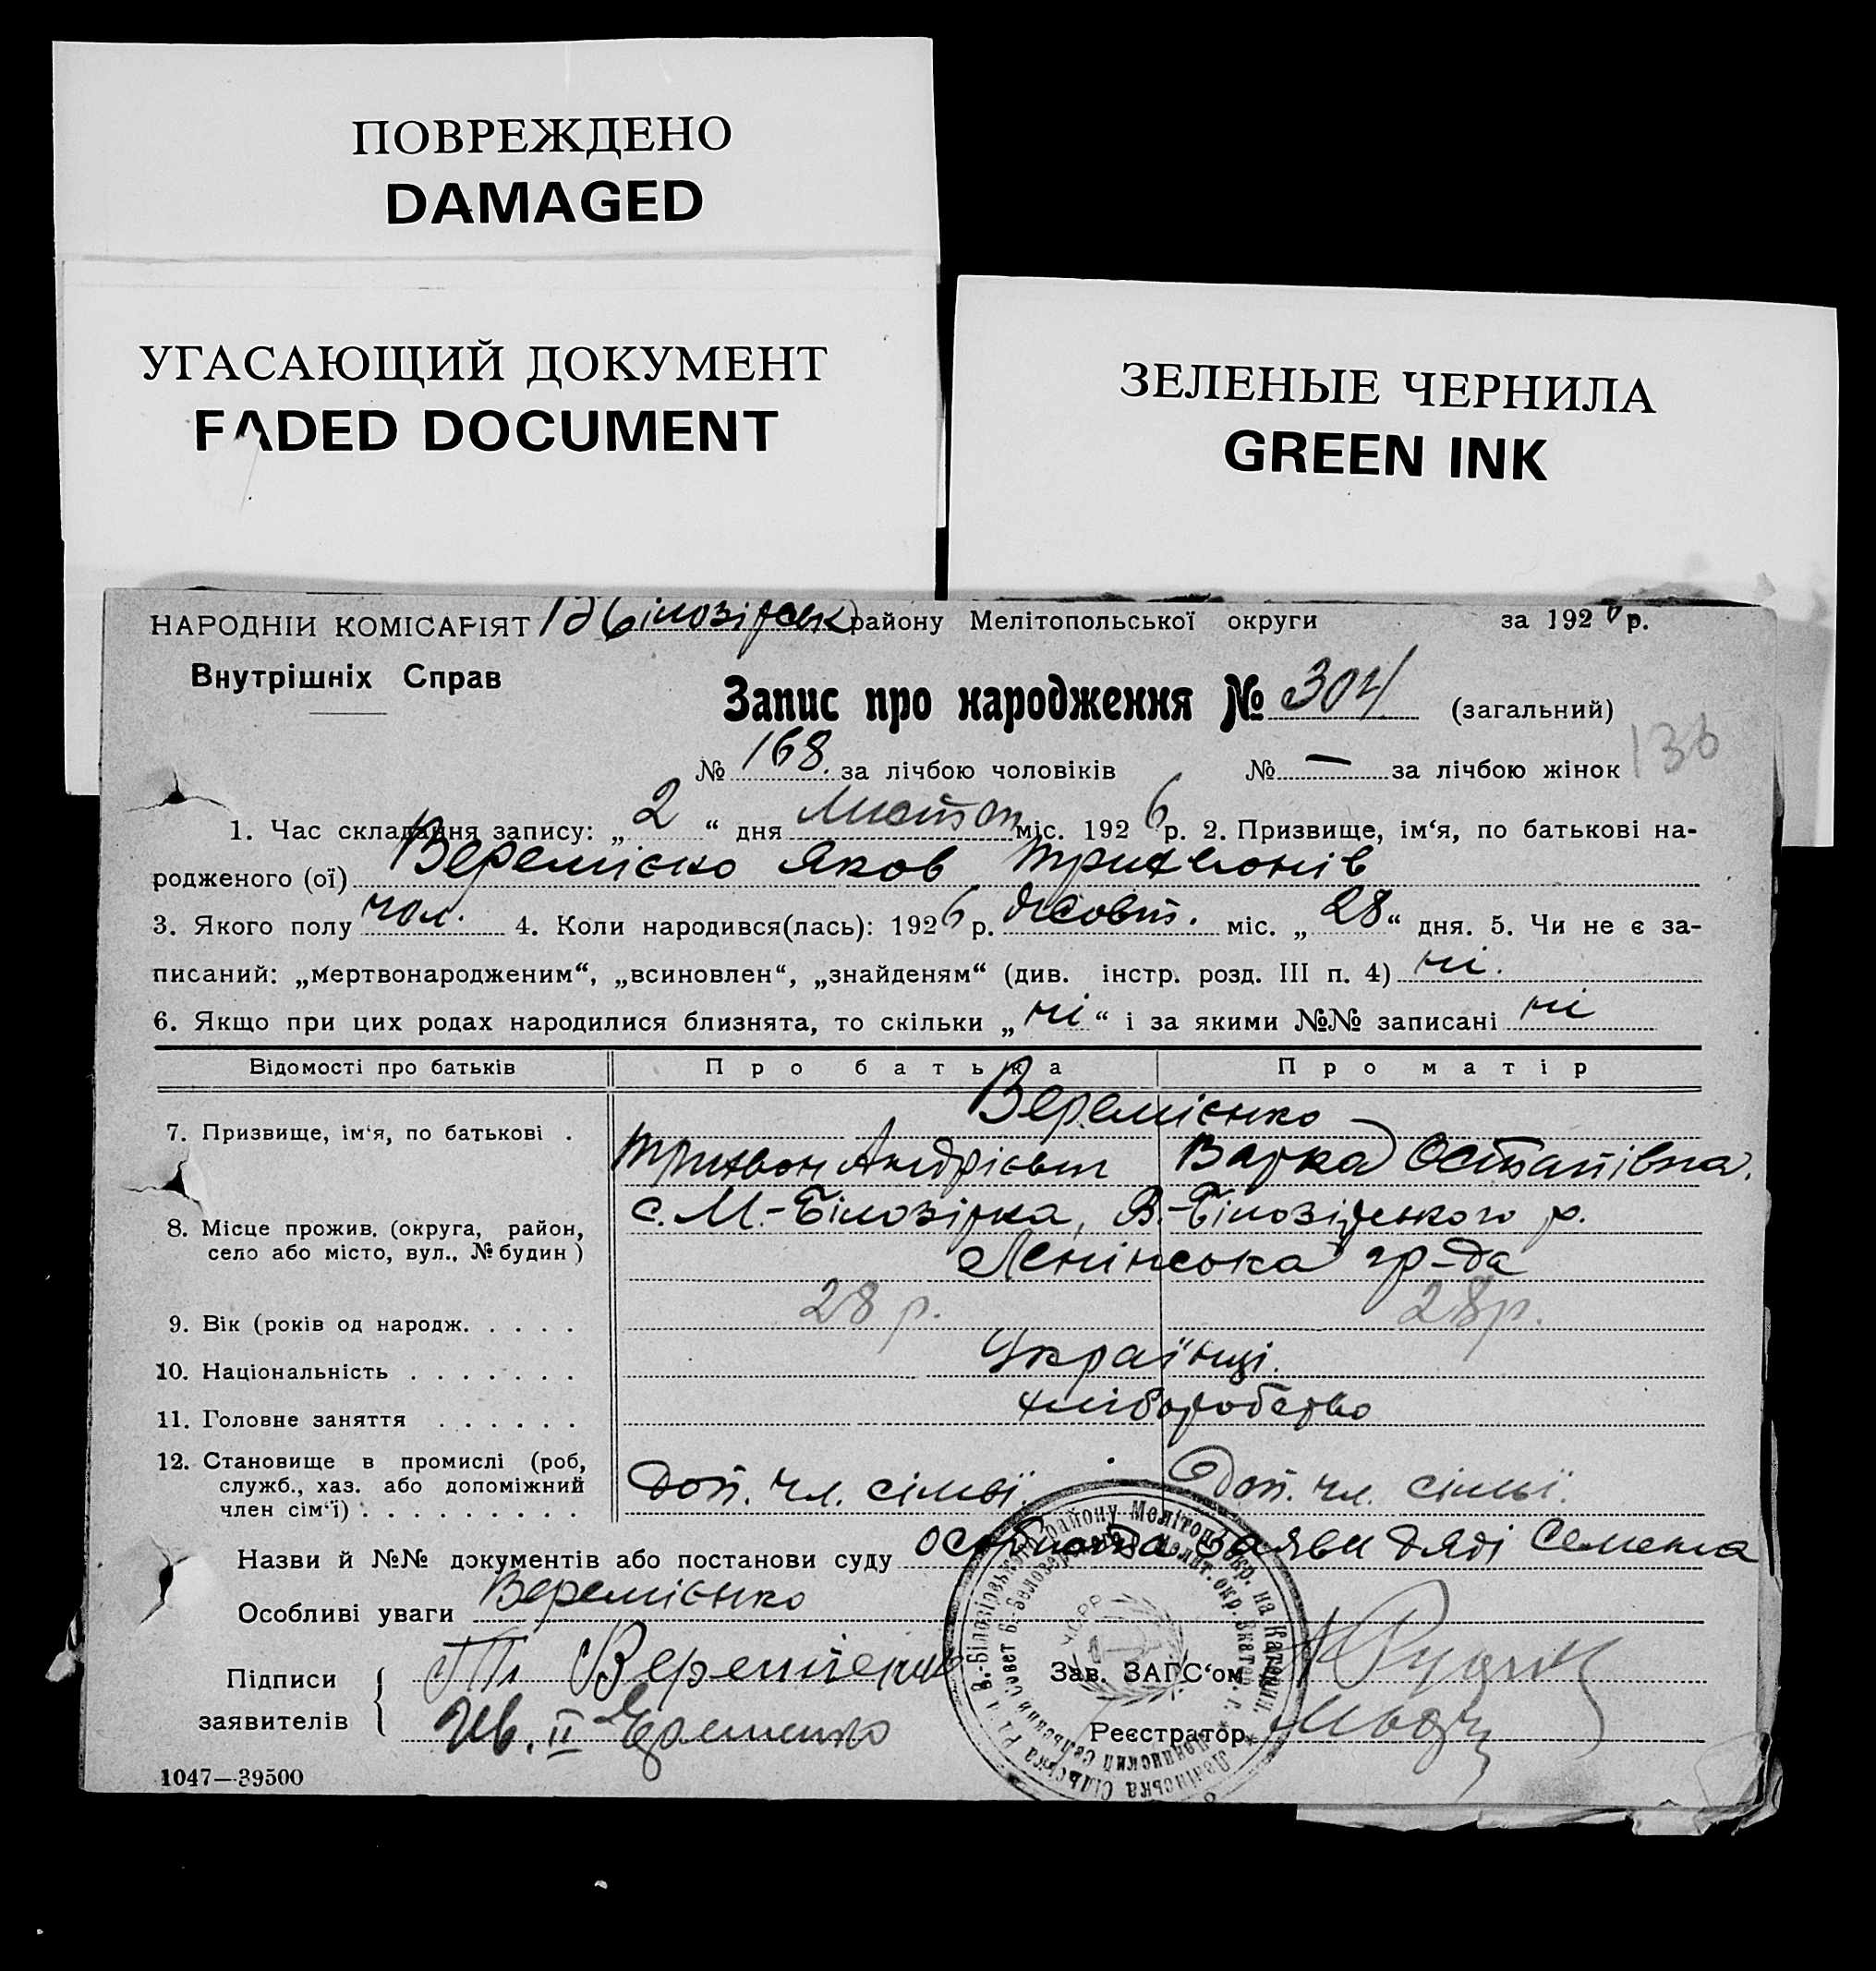 ПОВРЕЖДЕНО
DAMAGED
УГАСАЮЩИЙ ДОКУМЕНТ
FADED DOCUMENT
ЗЕЛЕНЫЕ ЧЕРНИЛА
GREEN INK
НАРОДНІЙ КОМІСАРІЯТ Білозірськ району Мелітопольської округи за 192 р.
Внутрішніх Справ
Запис про народження № 304 (загальний)
136
№ 168. за лічбою чоловіків № — за лічбою жінок
1. Час складання запису: „ 2 “ дня Листоп міс. 1926 р. 2. Призвище, ім‘я, по батькові на-
родженого (ої) Веремієко Яков Трихвонів
3. Якого полу чол. 4. Коли народився(лась): 1926 р. Жовт. міс. „ 28 “ дня. 5. Чи не є за-
писаний: „мертвонародженим“, „всиновлен“, „знайденям“ (див. інстр. розд. III п. 4) ні.
6. Якщо при цих родах народилися близнята, то скільки „ ні “ і за якими №№ записані ні
Відомості про батьків Про батька Про матір
Веремієнко
7. Призвище, ім‘я, по батькові . Трихвон Андрієвич Варка Остапівна.
8. Місце прожив. (округа, район, с. М.-Білозірка, В.-Білозірського р.
село або місто, вул., № будин ) Ленінська гр-да
9. Вік (років од народж. . . . . 28 р. 28 р.
10. Національність . . . . . . . Українці.
11. Головне заняття . . . . . . хліборобство
12. Становище в промислі (роб,
служб., хаз. або допоміжний Доп. чл. сімьї. Доп. чл. сімьї.
член сім‘ї) . . . . . . . . . .
Назви й №№ документів або постанови суду особиста заява дяді Семена
Особливі уваги Веремієнко
Підписи
заявителів
Зав. ЗАГС‘ом
Реєстратор
Ив. II Еременко
1047—39500